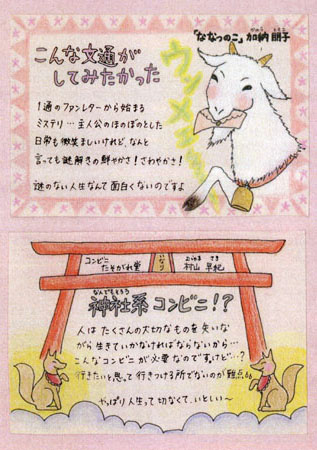 「ななつのこ」加納 朋子
かのう ともこ
こんな文通が
してみたかった
ウンメェ〜
1通のファンレターから始まる
ミステリ…主人公のほのぼのとした
日常も微笑ましいけれど、なんと
言っても謎解きの鮮やかさ!さわやかさ!
謎のない人生なんて面白くないのですよ
コンビニ
たそがれ堂
いなり
むらやま さき
村山 早紀
なんでもそろう
神社系 コンビニ!?
人は たくさんの大切なものを失いな
がら 生きていかなければならないから…
こんなコンビニが必要なのですけど…?
行きたいと思って行きつける所でないのが難点
やっぱり人生って切なくて、いとしい〜